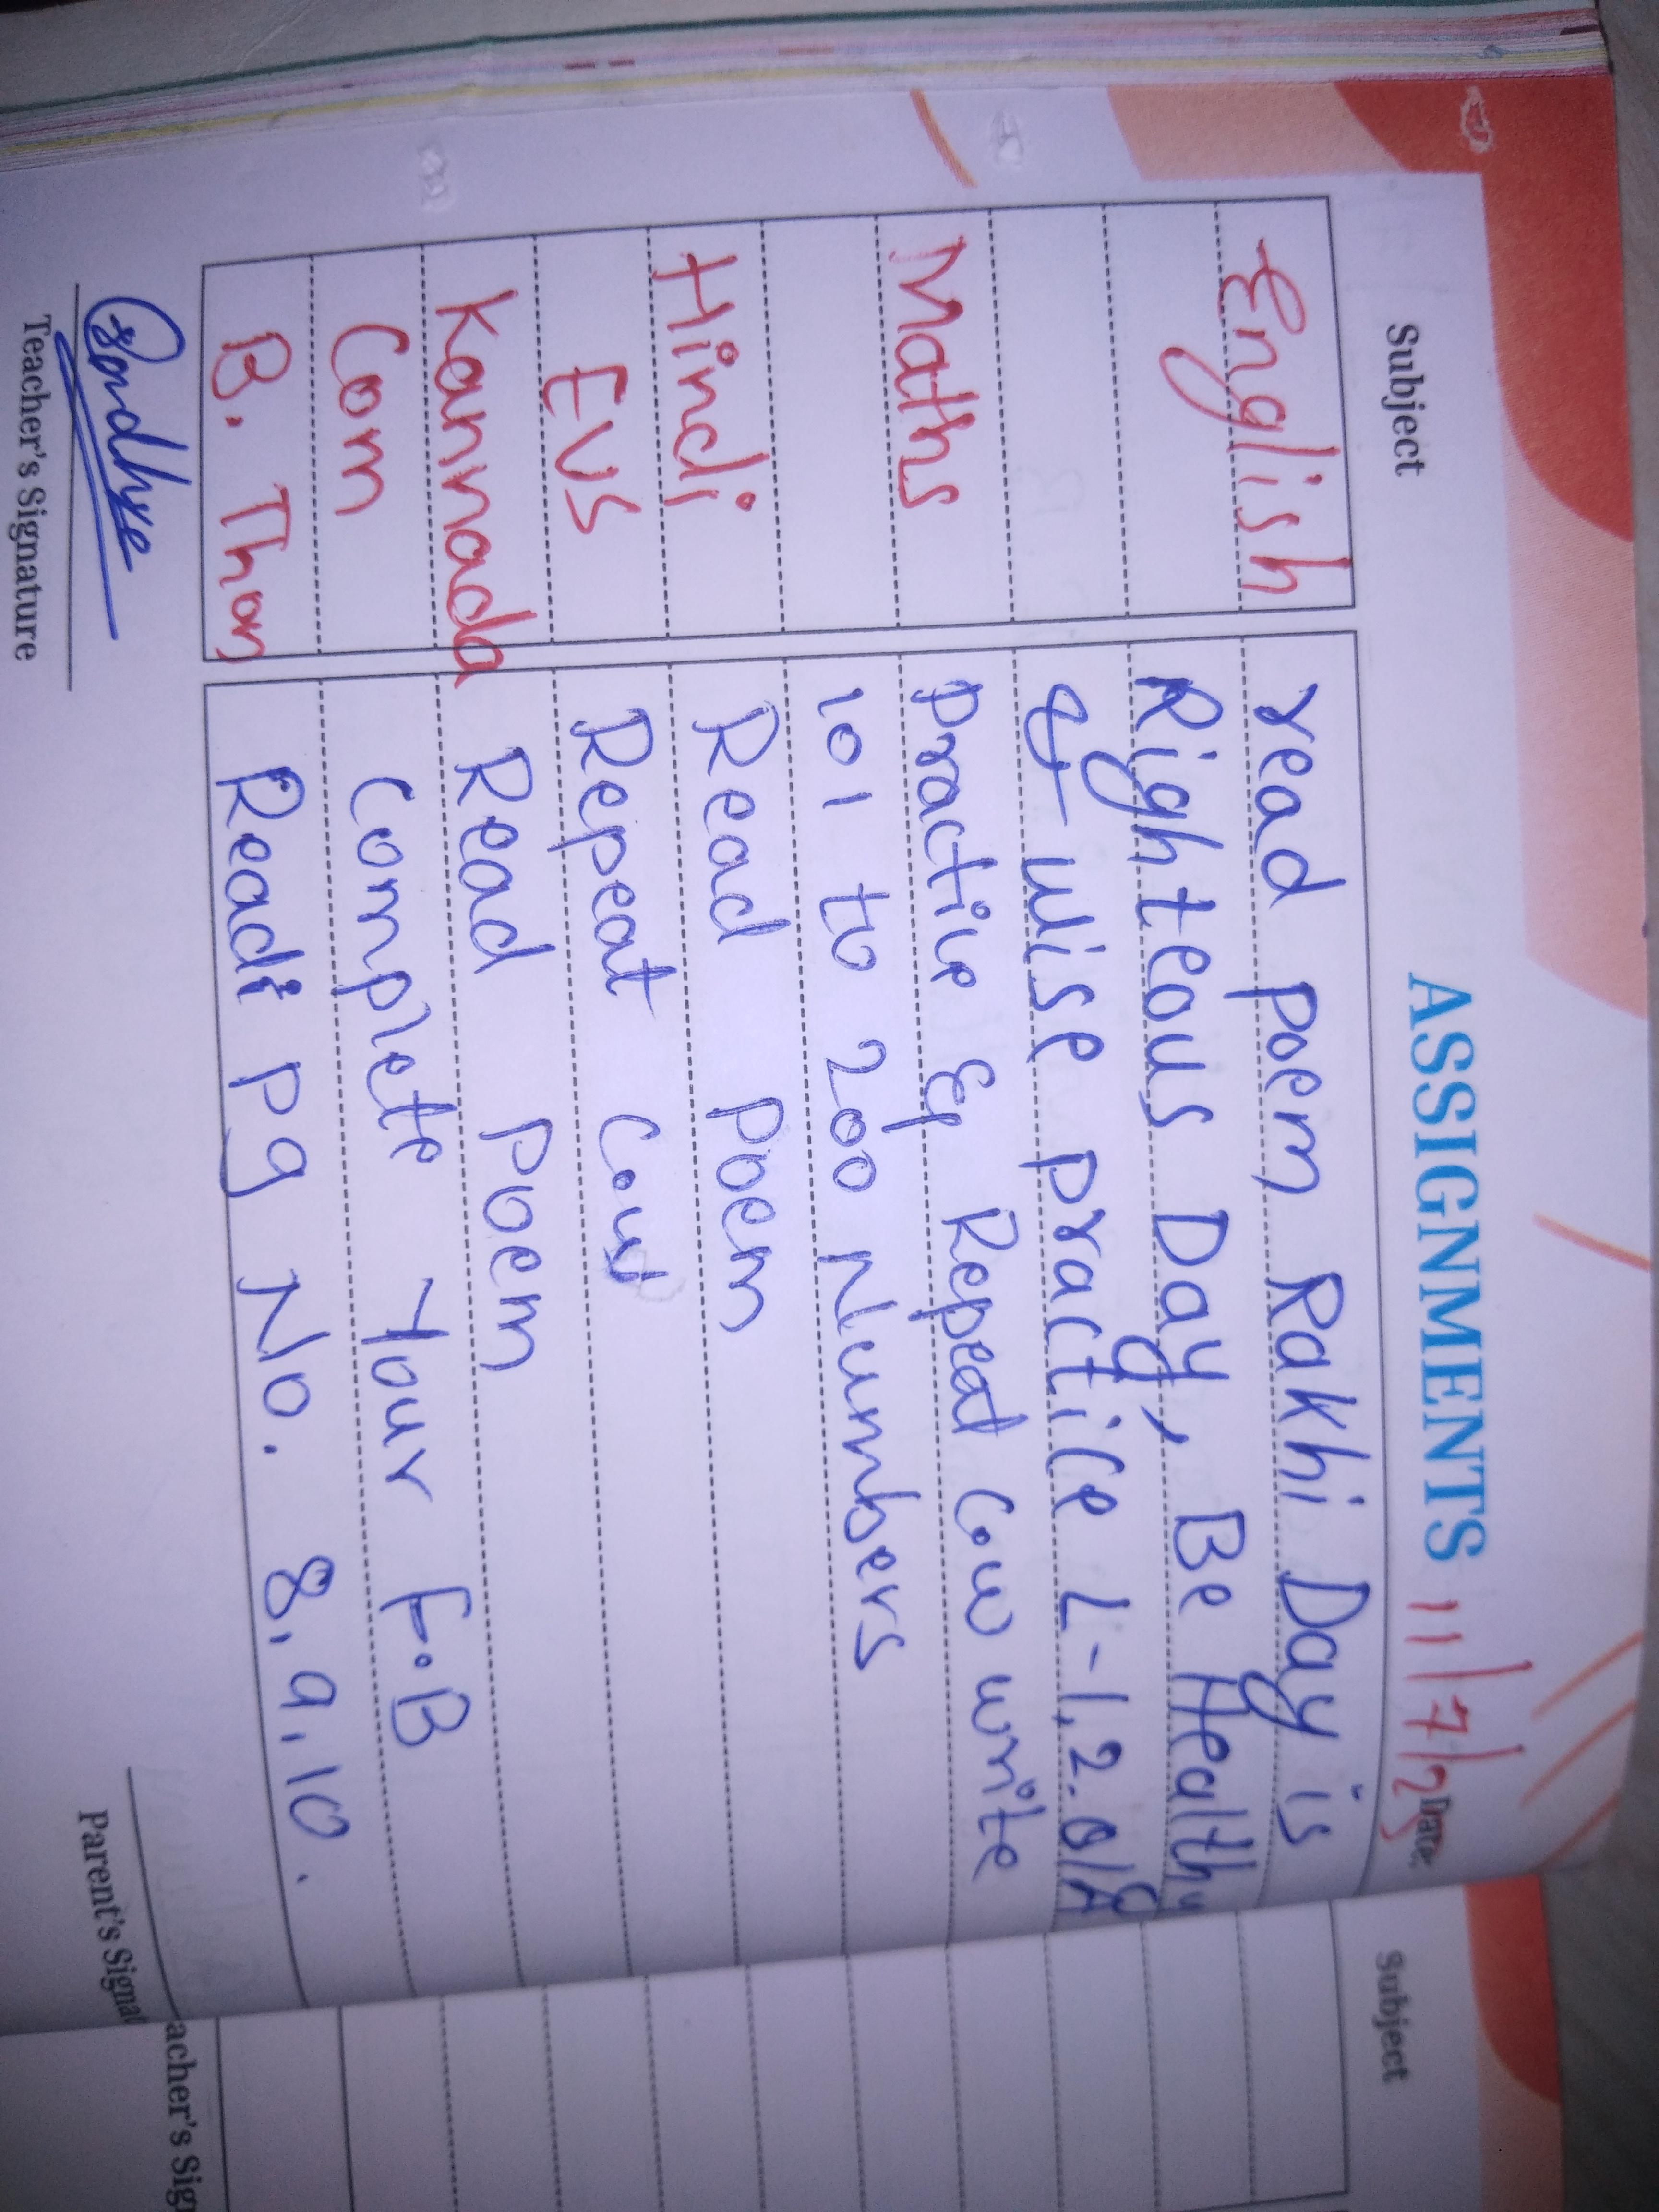 ASSIGNMENTS 11/7/25 Date:
Subject
English read poem Rakhi Day is
Righteous Day, Be Healthy
& wise practice L-1,2. Q/A
practive & Repeat C.w write
Maths 101 to 200 Numbers
Hindi Read poem
EVS Repeat C.w
Kannada Read poem
Com Complete Your F.B
B. Than Read pg No. 8, 9, 10.
Sandhye
Teacher's Signature
Parent's Signat
Subject
acher's Sig